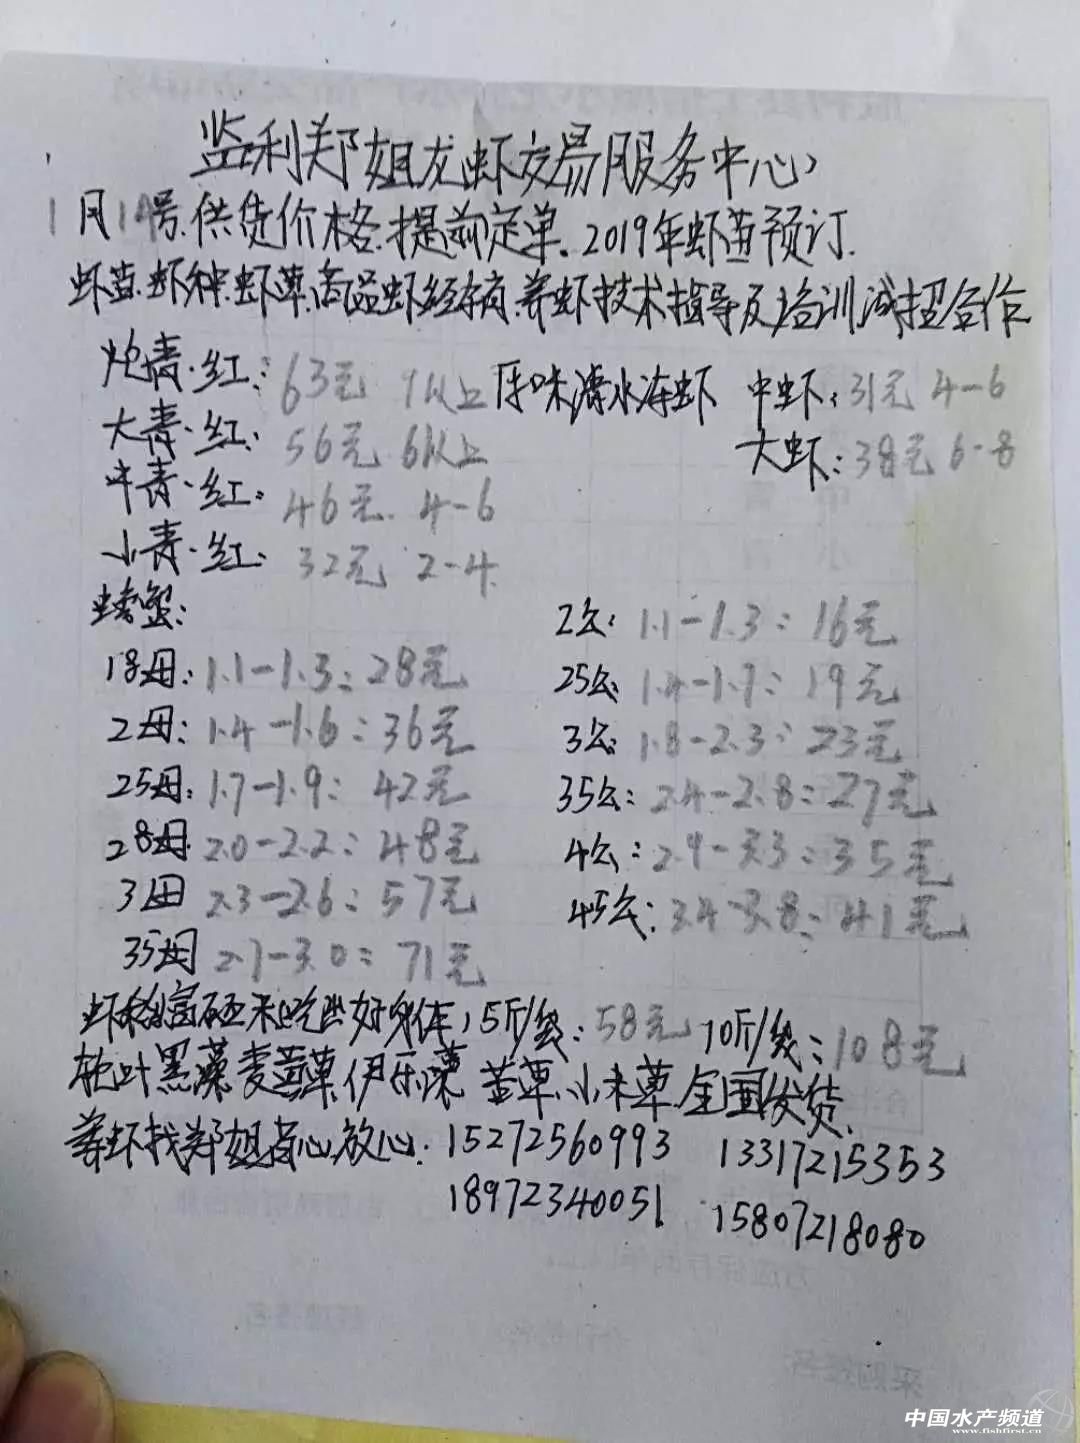 监利郑姐龙虾交易服务中心
1月14号.供货价格.提前定单.2019年虾苗预订.
虾苗.虾种.虾草.商品虾经销.养虾技术指导及培训诚招合作
炮青·红: 63元 9以上 原味清水冻虾 中虾:31元 4-6
大青·红: 56元 6以上 大虾:38元 6-8
中青·红: 46元. 4-6
小青·红: 32元 2-4.
螃蟹: 2公: 1.1-1.3: 16元
18母: 1.1-1.3: 28元 25公: 1.4-1.7: 19元
2母: 1.4-1.6: 36元 3公: 1.8-2.3: 23元
25母: 1.7-1.9: 42元 35公: 2.4-2.8: 27元
28母 2.0-2.2: 48元 4公: 2.9-3.3: 35元
3母 2.3-2.6: 57元 45公: 3.4-3.8: 41元
35母 2.7-3.0: 71元
虾稻富硒米吃出好身体, 5斤/袋: 58元 10斤/袋: 108元
轮叶黑藻 麦黄草.伊乐藻 苦草.小米草.全国发货.
养虾找郑姐省心放心. 15272560993 13317215353
18972340051 15807218080
中国水产频道
www.fishfirst.cn